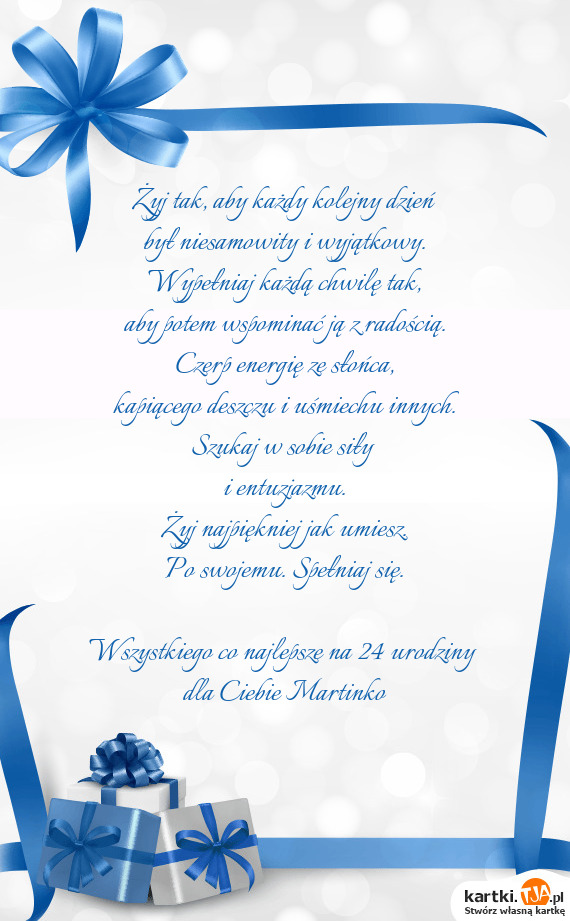 Żyj tak, aby każdy kolejny dzień
był niesamowity i wyjątkowy.
Wypełniaj każdą chwilę tak,
aby potem wspominać ją z radością.
Czerp energię ze słońca,
kapiącego deszczu i uśmiechu innych.
Szukaj w sobie siły
i entuzjazmu.
Żyj najpiękniej jak umiesz.
Po swojemu. Spełniaj się.
Wszystkiego co najlepsze na 24 urodziny
dla Ciebie Martinko
kartki.TJA.pl
Stwórz własną kartkę